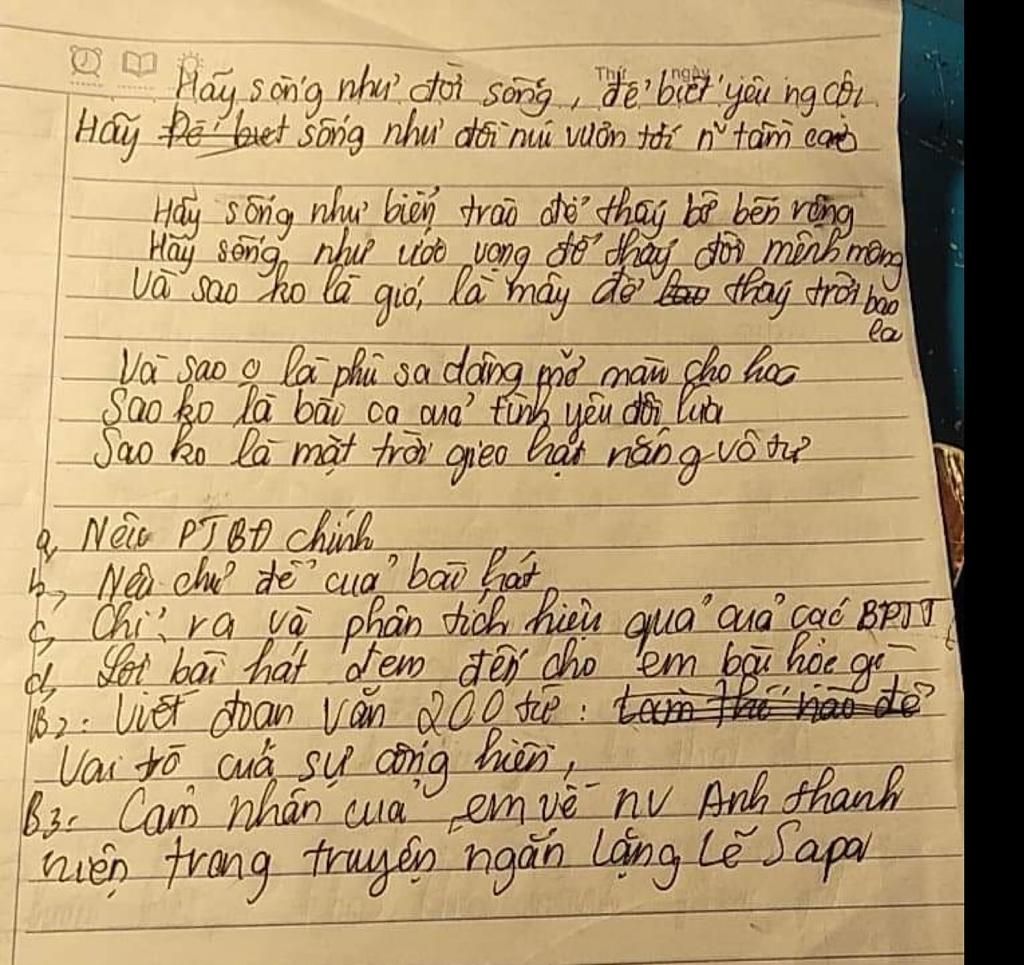 Thứ ngày
Hãy sống như đời sống, để biết yêu ng cội
Hãy Để biết sống như đồi núi vươn tới n~ tầm cao
Hãy sống như biển trào để thấy bờ bến rộng
Hãy sống như ước vọng để thấy đời mênh mông
Và sao ko là gió, là mây để thấy trời bao
la
Và sao o là phù sa dâng mỡ màu cho hoa
Sao ko là bài ca của tình yêu đôi lứa
Sao ko là mặt trời gieo hạt nắng vô tư
a, Nêu PTBĐ chính
b, Nêu chủ đề của bài hát
c, Chỉ ra và phân tích hiệu quả của các BPTT
d, Lời bài hát đem đến cho em bài học gì
B2: Viết đoạn văn 200 từ: Làm thế nào để
Vai trò của sự cống hiến,
B3: Cảm nhận của em về nv Anh thanh
niên trong truyện ngắn Lặng Lẽ Sapa